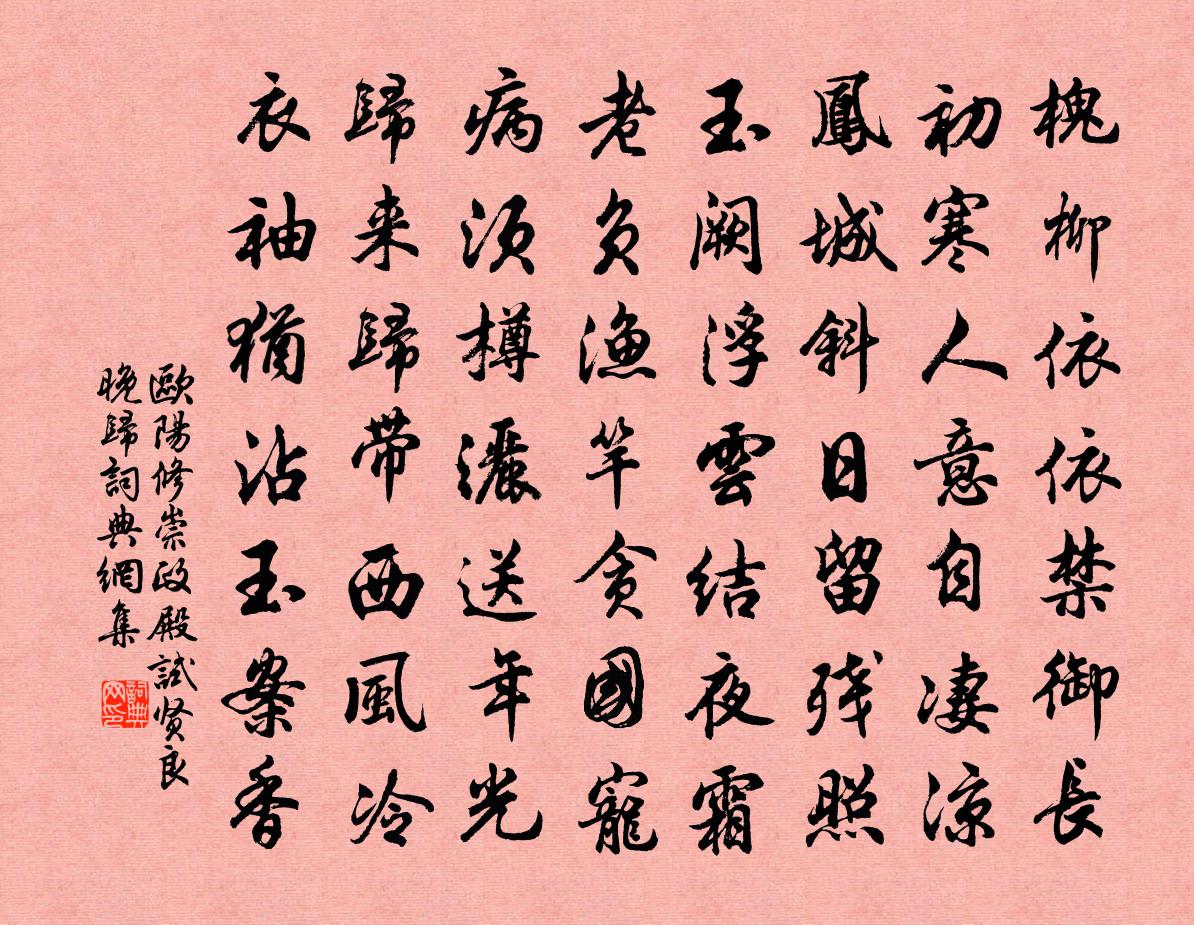 槐柳依依禁御長
初寒人意自凄涼
鳳城斜日留残照
玉阙浮雲结夜霜
老负漁竿贪國寵
病须樽灑送年光
歸来歸带西風冷
衣袖猶沾玉案香
歐陽修崇政殿試贤良
晚歸詞典網集
詞典网印